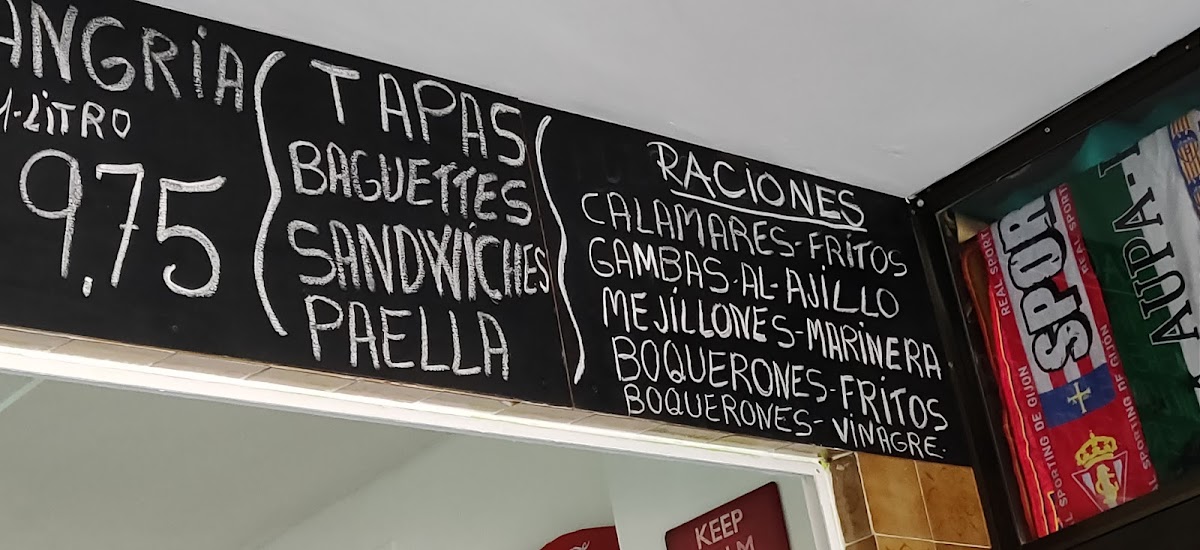 ANGRIA
1-LITRO
9,75
TAPAS
BAGUETTES
SANDWICHES
PAELLA
RACIONES
CALAMARES-FRITOS
GAMBAS-AL-AJILLO
MEJILLONES-MARINERA
BOQUERONES-FRITOS
BOQUERONES-VINAGRE.
REAL SPORT
SPOR
REAL SPORT
SPORTING DE GIJON
AL SPORTING DE GIJON
AUPA
KEEP